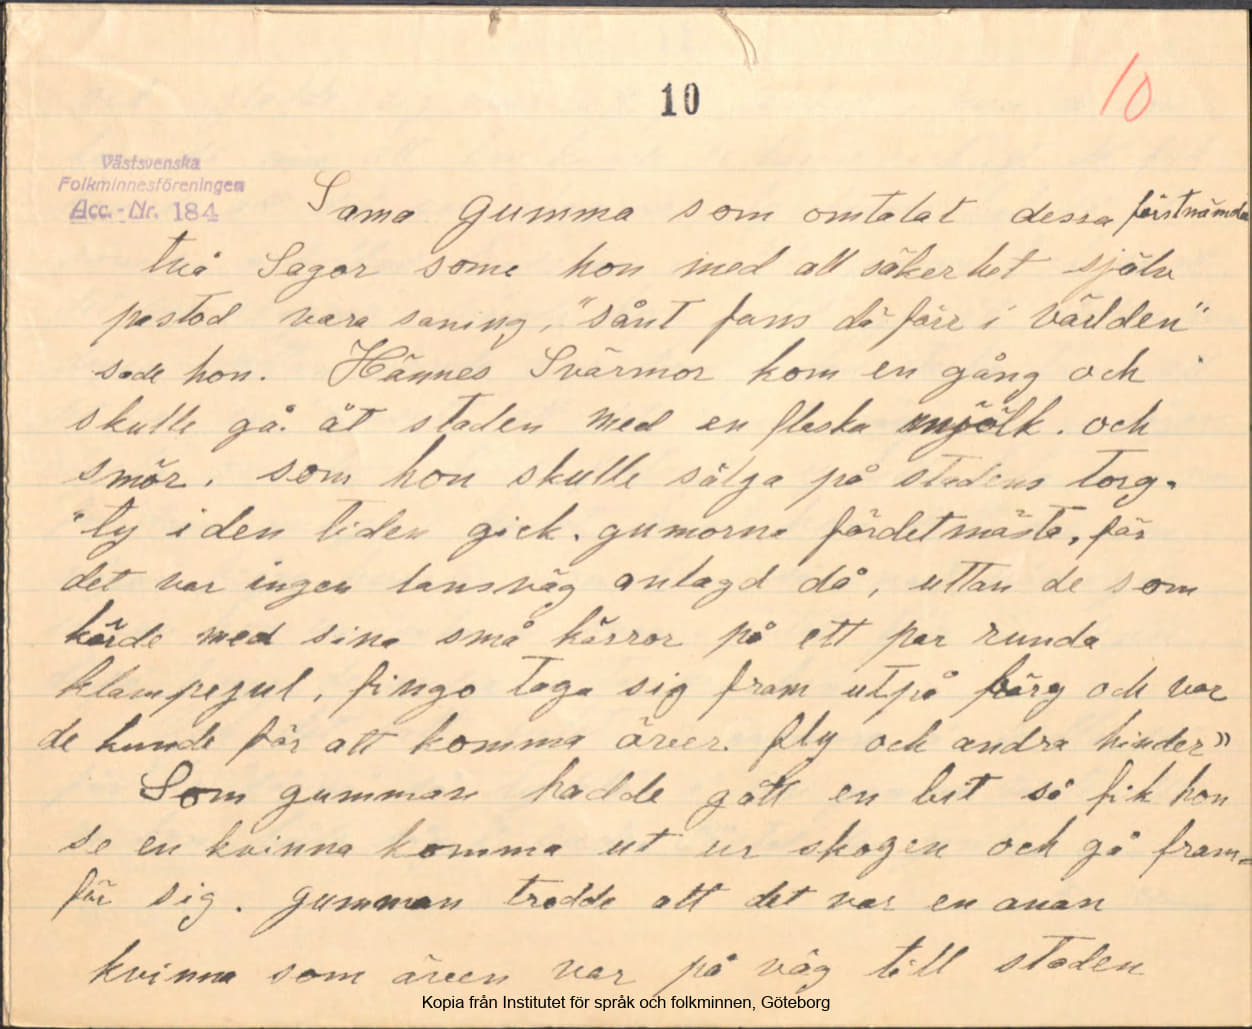 10
10
Västsvenska
Folkminnesföreningen
Acc.-Nr. 184
Sama Gumma som omtalat dessa förstnämda
två Sagor some hon med all säkerhet själv
påstod vara saning, "sånt fans då förr i världen"
sade hon. Hännes Svärmor kom en gång och
skulle gå åt staden med en flaska mjölk. och
smör. som hon skulle sälga på stadens torg.
"ty i den tiden gick. gumorna fördetmästa, för
det var ingen lansväg anlagd då, uttan de som
körde med sina små kärror på ett par runda
klampejul, fingo taga sig fram utpå bärg och var
de kunde för att komma över. fly och andra hinder"
Som gumman hadde gått en bit så fik hon
se en kvinna komma ut ur skogen och gå fram=
för sig. gumman trodde att det var en anan
kvinna som även var på väg till staden
Kopia från Institutet för språk och folkminnen, Göteborg